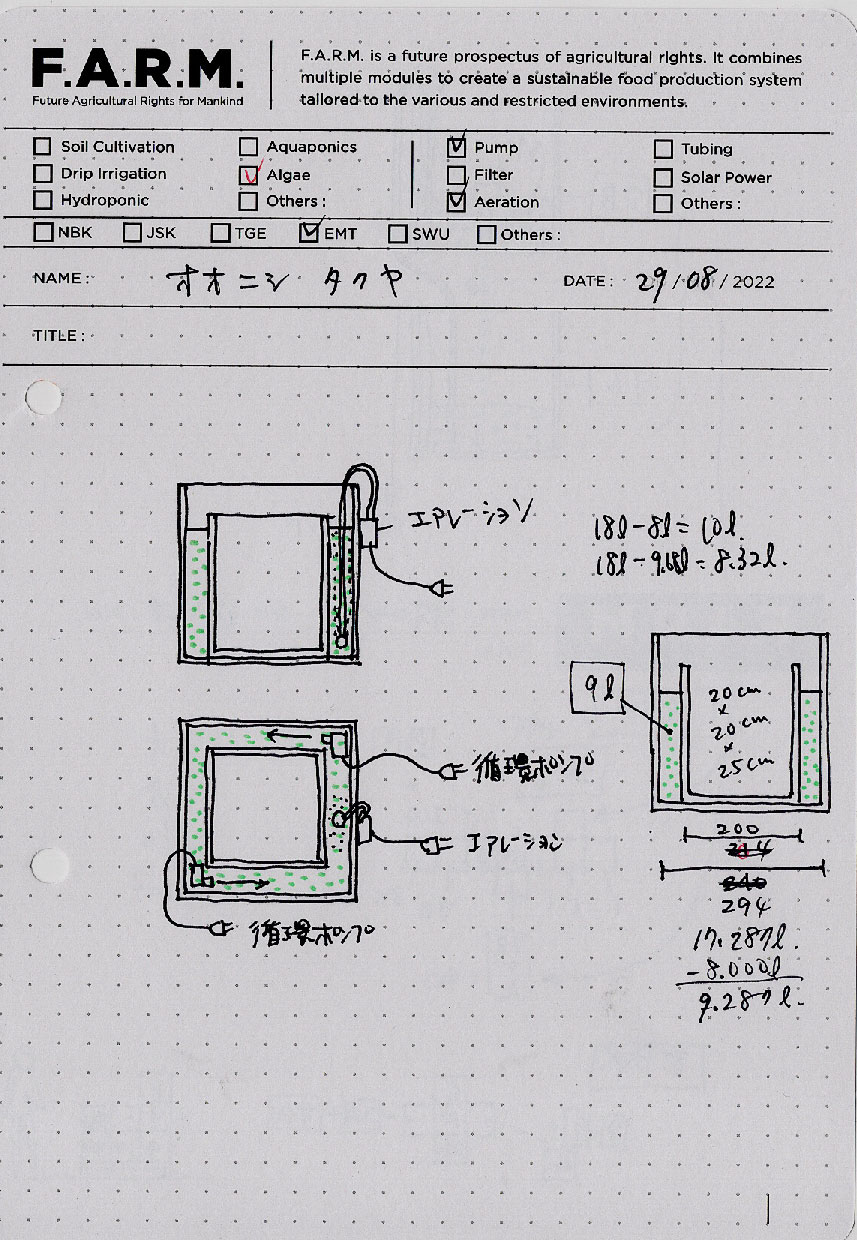 F.A.R.M.
Future Agricultural Rights for Mankind
F.A.R.M. is a future prospectus of agricultural rights. It combines
multiple modules to create a sustainable food production system
tailored to the various and restricted environments.
Soil Cultivation Aquaponics Pump Tubing
Drip Irrigation Algae Filter Solar Power
Hydroponic Others : Aeration Others :
NBK JSK TGE EMT SWU Others :
NAME : オオニシ タクヤ DATE : 29/08/2022
TITLE :
エアレーション
18l-8l=10l.
18l-9.68l=8.32l.
9l
20cm
×
20cm
×
25cm
循環ポンプ
エアレーション
循環ポンプ
200
294
17.287l.
-8.000l
9.287l.